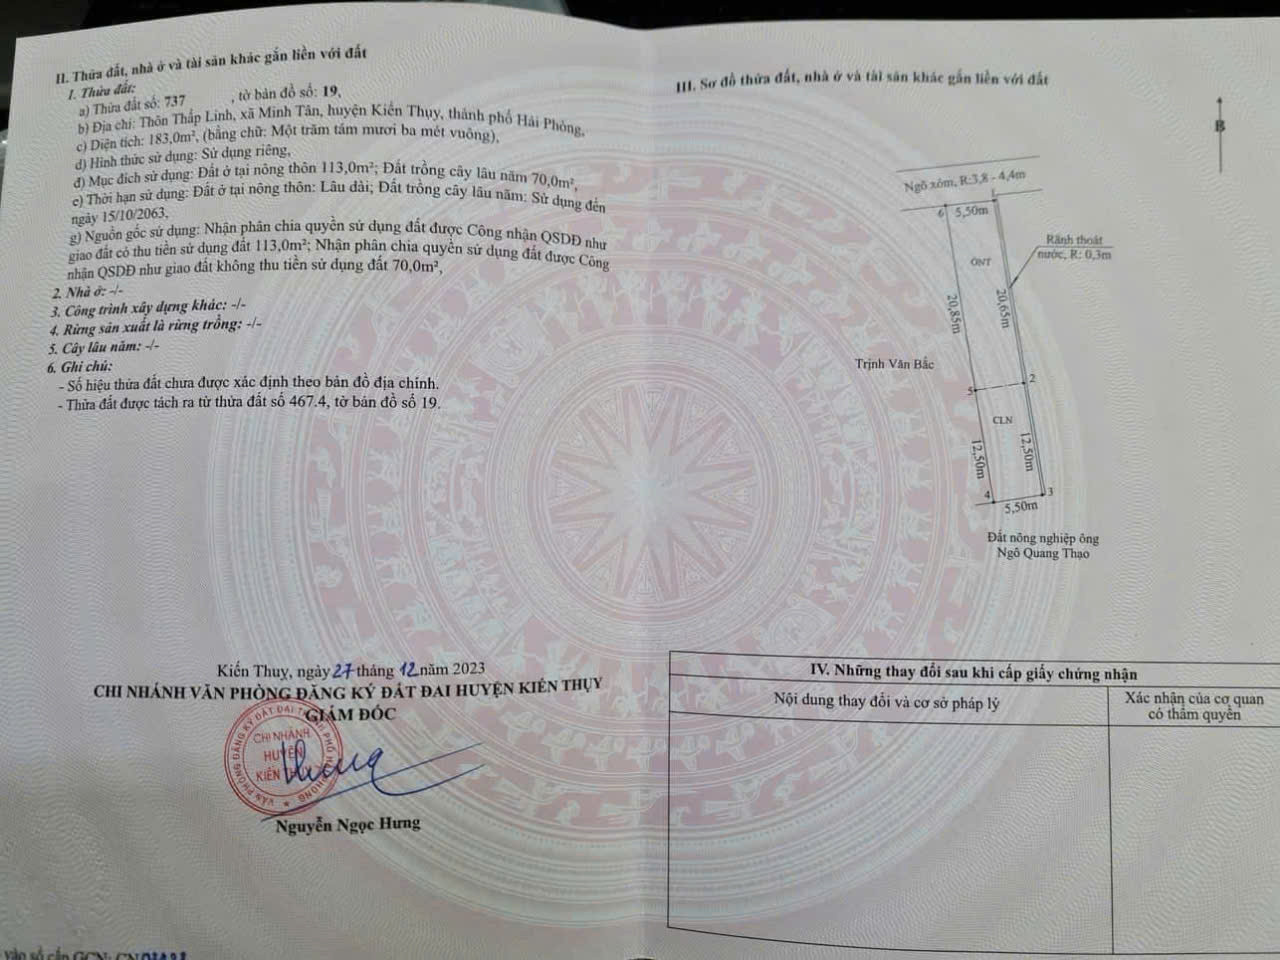 II. Thửa đất, nhà ở và tài sản khác gắn liền với đất
1. Thửa đất:
a) Thửa đất số: 737 , tờ bản đồ số: 19,
b) Địa chỉ: Thôn Thắp Linh, xã Minh Tân, huyện Kiến Thụy, thành phố Hải Phòng,
c) Diện tích: 183,0m², (bằng chữ: Một trăm tám mươi ba mét vuông),
d) Hình thức sử dụng: Sử dụng riêng,
đ) Mục đích sử dụng: Đất ở tại nông thôn 113,0m²; Đất trồng cây lâu năm 70,0m²,
e) Thời hạn sử dụng: Đất ở tại nông thôn: Lâu dài; Đất trồng cây lâu năm: Sử dụng đến
ngày 15/10/2063,
g) Nguồn gốc sử dụng: Nhận phân chia quyền sử dụng đất được Công nhận QSDĐ như
giao đất có thu tiền sử dụng đất 113,0m²; Nhận phân chia quyền sử dụng đất được Công
nhận QSDĐ như giao đất không thu tiền sử dụng đất 70,0m²,
2. Nhà ở: -/-
3. Công trình xây dựng khác: -/-
4. Rừng sản xuất là rừng trồng: -/-
5. Cây lâu năm: -/-
6. Ghi chú:
- Số hiệu thửa đất chưa được xác định theo bản đồ địa chính.
- Thửa đất được tách ra từ thửa đất số 467.4, tờ bản đồ số 19.
Kiến Thụy, ngày 27 tháng 12 năm 2023
CHI NHÁNH VĂN PHÒNG ĐĂNG KÝ ĐẤT ĐAI HUYỆN KIẾN THỤY
GIÁM ĐỐC
VĂN PHÒNG ĐĂNG KÝ ĐẤT ĐAI THÀNH PHỐ HẢI PHÒNG
CHI NHÁNH
HUYỆN
KIẾN THỤY
Nguyễn Ngọc Hưng
III. Sơ đồ thửa đất, nhà ở và tài sản khác gắn liền với đất
B
Ngõ xóm, R:3,8 - 4,4m
1
6
5,50m
Rãnh thoát
nước, R: 0,3m
ONT
20,85m
20,65m
Trịnh Văn Bắc
2
5
CLN
12,50m
12,50m
4
3
5,50m
Đất nông nghiệp ông
Ngô Quang Thạo
IV. Những thay đổi sau khi cấp giấy chứng nhận
Nội dung thay đổi và cơ sở pháp lý
Xác nhận của cơ quan
có thẩm quyền
vào sổ cấp GCN: